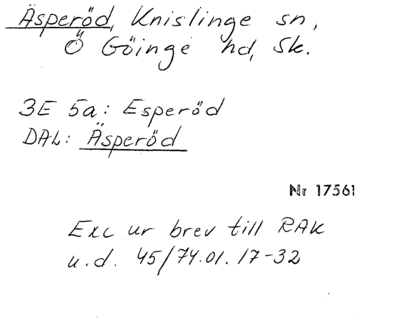 Äsperöd, Knislinge sn,
Ö Göinge hd, Sk.
3E 5a: Esperöd
DAL: Äsperöd
Nr 17561
Exc ur brev till RAK
u.d. 45/74.01.17-32